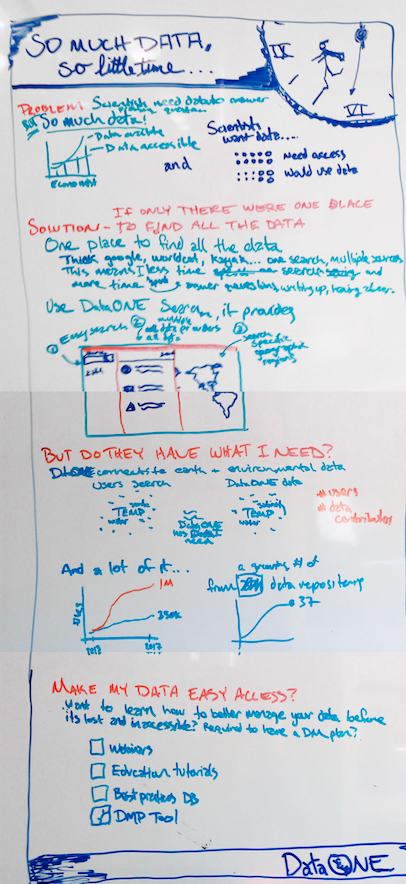 SO MUCH DATA,
so little time...
IX
VI
PROBLEM: Scientists need data to answer
But So much data!
Data accessible
Economist
and
Scientists
want data....
need access
would use data
IF ONLY THERE WERE ONE PLACE
SOLUTION - TO FIND ALL THE DATA
One place to find all the data
Think google, worldcat, kayak... one search, multiple sources
This means less time on search and
more time answer questions, writing up,
Use DataONE Search, it provides
1 Easy search
2 multiple
3 search
specific
geographic
regions
BUT DO THEY HAVE WHAT I NEED?
DataONE connects to earth + environmental data
Users search
DataONE data
TEMP
water
DataONE
has
need
salinity
TEMP
water
# users
# data
contributors
And a lot of it...
1M
350k
2012
2017
a growing # of
from data repository
37
MAKE MY DATA EASY ACCESS?
Want to learn how to better manage your data before
its lost and inaccessible? Required to have a DM plan?
Webinars
Education tutorials
Best practices DB
DMP Tool
DataONE